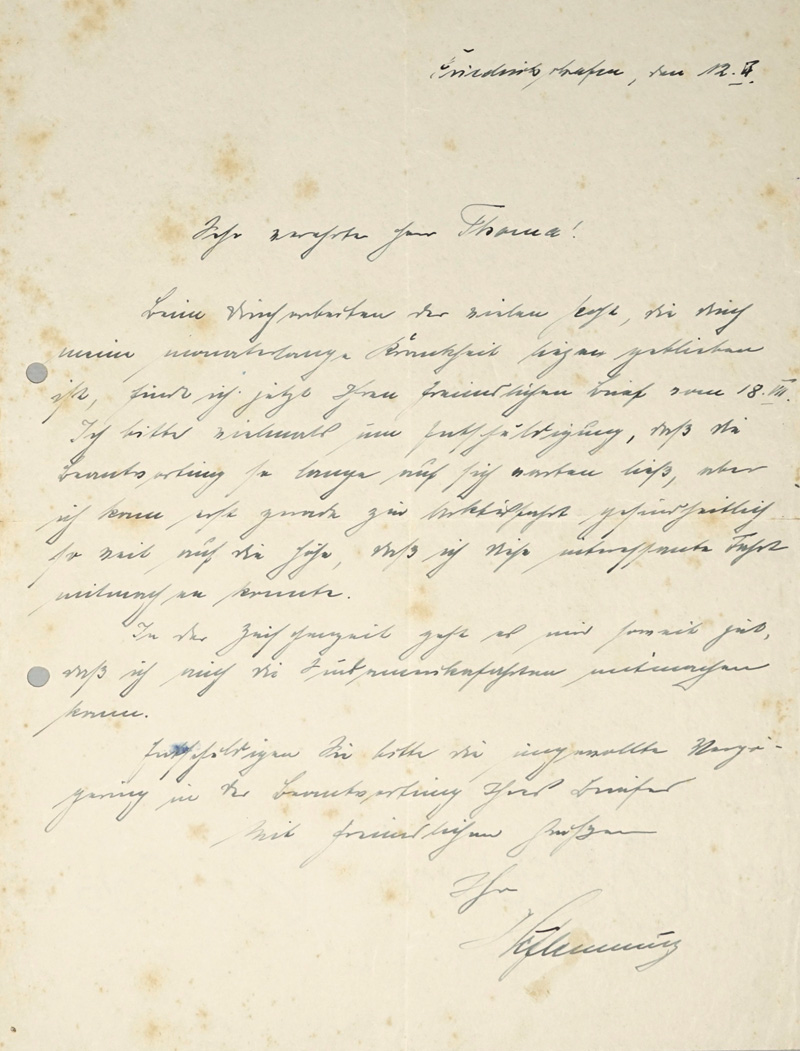 Friedrichshafen, den 12. IX.
Sehr verehrter Herr Thoma!
Beim Durcharbeiten der vielen Post, die durch
meine monatelange Krankheit liegen geblieben
ist, finde ich jetzt Ihren freundlichen Brief vom 18. VII.
Ich bitte vielmals um Entschuldigung, daß die
Beantwortung so lange auf sich warten ließ, aber
ich kam erst gerade zur Arktisfahrt gesundheitlich
so weit auf die Höhe, daß ich diese interessante Fahrt
mitmachen konnte.
In der Zwischenzeit geht es mir soweit gut,
daß ich auch die Südamerikafahrten mitmachen
kann.
Entschuldigen Sie bitte die ungewollte Verzö-
gerung in der Beantwortung Ihres Briefes
Mit freundlichen Grüßen
Ihr
Flemming